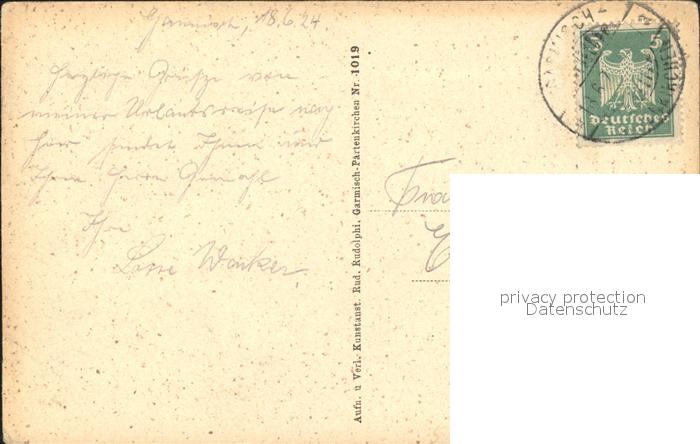 Garmisch, 18.6.24
Herzliche Grüße von
meiner Urlaubsreise
hier sendet Ihnen und
Ihrem Herrn Gemahl
Ihre
Winker
Aufn. u Verl. Kunstanst. Rud. Rudolphi, Garmisch-Partenkirchen Nr. 1019
5
Deutsches
Reich
privacy protection
Datenschutz